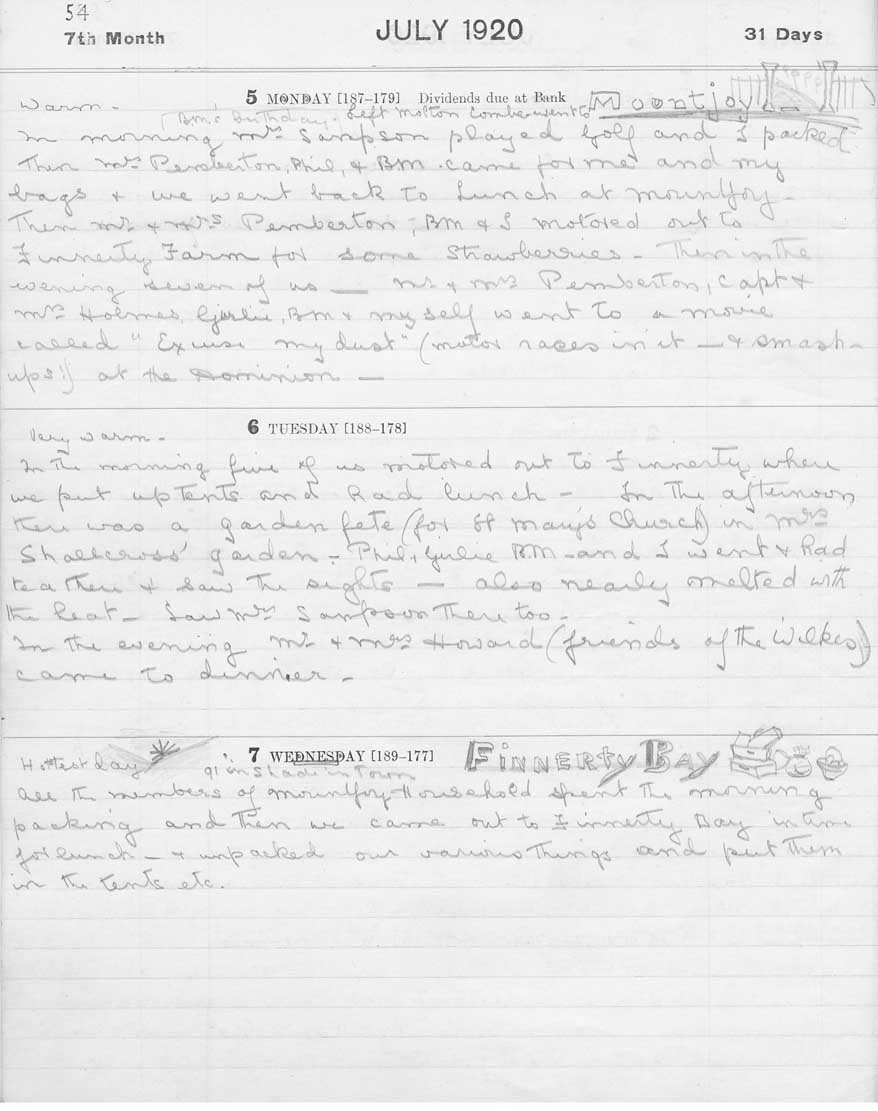 54
7th Month
JULY 1920
31 Days
5 MONDAY [187–179] Dividends due at Bank
Warm -
Moontjoy
BM's birthday. Left Molton Combe went to
In morning Mrs Sampson played golf and I packed.
Then Mrs Pemberton, Phil, & BM. came for me and my
bags & we went back to lunch at Mountjoy -
Then Mr & Mrs Pemberton, BM & I motored out to
Finnerty Farm for some strawberries - Then in the
evening seven of us — Mr & Mrs Pemberton, Capt &
Mrs Holmes, Girlie, BM & my self went to a movie
called "Excuse my dust" (motor races in it — & smash-
ups!) at the Dominion —
6 TUESDAY [188–178]
Very warm -
In the morning five of us motored out to Finnerty where
we put up tents and had lunch - In the afternoon
there was a garden fete (for St Mary's Church) in Mrs
Shallcross' garden - Phil, Girlie BM - and I went & had
tea there & saw the sights — also nearly melted with
the heat - Saw Mrs Sampson there too -
In the evening Mr & Mrs Howard (friends of the Wilkes)
came to dinner -
7 WEDNESDAY [189–177]
FINNERTY BAY
Hottest day
91 in Shade in Town
All the members of Mountjoy Household spent the morning
packing and then we came out to Finnerty Bay in time
for lunch - & unpacked our various things and put them
in the tents etc.